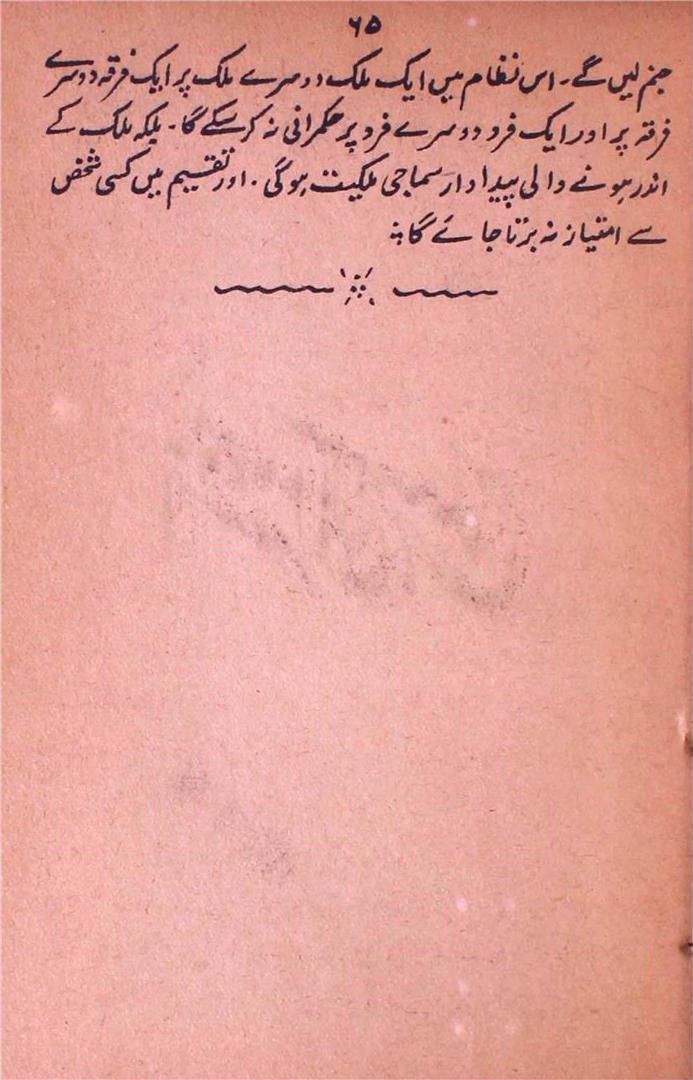 ۶۵
جنم لیں گے۔ اس نظام میں ایک ملک دوسرے ملک پر ایک فرقہ دوسرے
فرقہ پر اور ایک فرد دوسرے فرد پر حکمرانی نہ کر سکے گا۔ بلکہ ملک کے
اندر ہونے والی پیداوار سماجی ملکیت ہوگی۔ اور تقسیم میں کسی شخص
سے امتیاز نہ برتا جائے گا۔